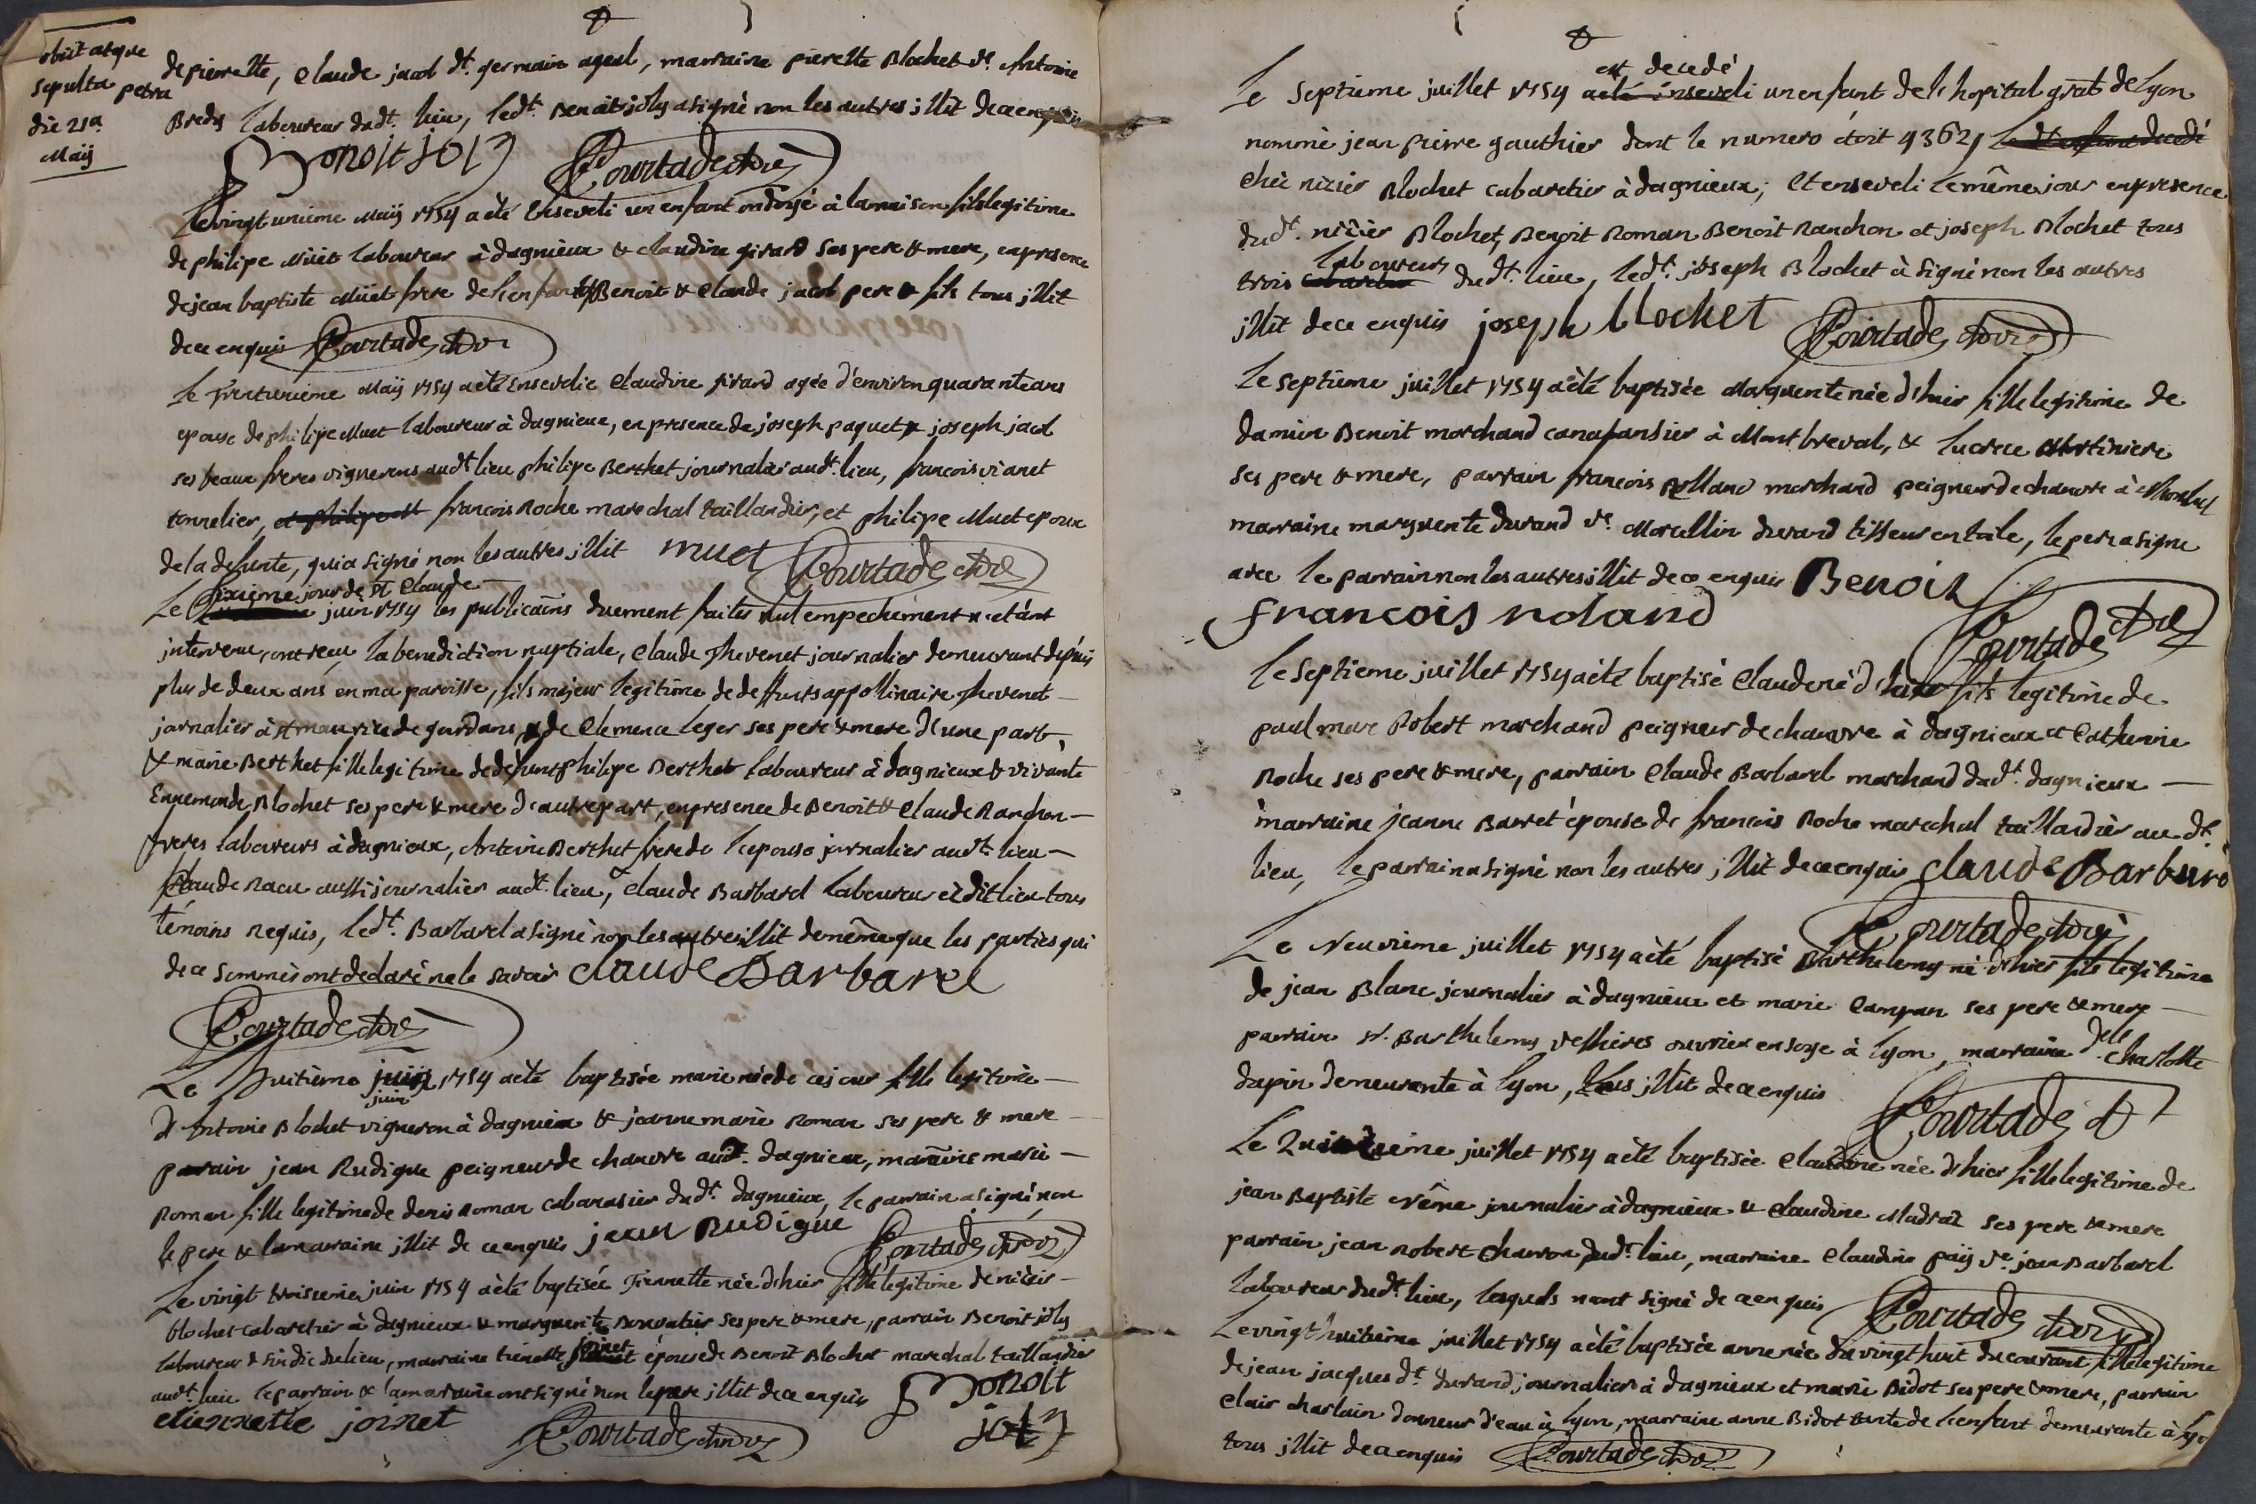 obiit atque
sepulta petra
die 21a
Maÿ
de pierrette, Claude jacob dt. germain ayeul, marraine pierette Blochet ve. Antoine
Bredy laboureur dudt. lieu, ledt. Benoit joly a signé non les autres illit. de ce enquis
Benoit joly Courtade curé
Le vingt unieme Maÿ 1754 a été Enseveli un enfant ondoyé à la maison fils legitime
de philipe Muet laboureur à dagnieux & claudine girard ses pere & mere, en presence
de jean baptiste Muet frere de l'enfant & Benoit & Claude jacob pere & fils tous illit
de ce enquis Courtade curé
Le trentunieme Maÿ 1754 a été Ensevelie Claudine girard agée d'environ quarante ans
epouse de philipe Muet laboureur à dagnieux, en presence de joseph paquet & joseph jacob
ses beaux freres vignerons audt lieu philipe Berthet journalier audt. lieu, francois vianet
tonnelier, et philipe M francois Roche marechal taillandier, et philipe Muet epoux
de la defunte, qui a signé non les autres illit muet Courtade curé
sixieme jour de St Claude
Le juin 1754 les publicaõns duement faites nul empechement n'etant
intervenu, ont reçu la benediction nuptiale, Claude Thevenet journalier demeurant depuis
plus de deux ans en ma paroisse, fils majeur legitime de deffunts appollinaire Thevenet
jornalier à st maurice de gourdans, & de Clemence leger ses pere & mere d'une part,
& marie Berthet fille legitime de defunt philipe Berthet laboureur à dagnieux & vivante
Ennemonde Blochet ses pere & mere d'autre part, en presence de Benoit & Claude Ranchon
freres laboureurs à dagnieux, Antoine Berthet frere de l'epouse jornalier audt. lieu
Claude Racu aussi journalier audt. lieu, Claude Barbarel laboureur edit lieu tous
témoins requis, ledt. Barbarel a signé non les autres illit de même que les parties qui
de ce sommés ont declaré ne le savoir claude Barbarel
Courtade curé
Le huitieme juin 1754 a été baptisée marie née de ce jour fille legitime
juin
d'Antoine Blochet vigneron à dagnieux & jeanne marie Roman ses pere & mere
parrain jean Rudigue peigneur de chanvre audt. dagnieux, marraine marie
Roman fille legitime de denis Roman cabaretier dudt. dagnieux, le parrain a signé non
le pere & la marraine illit de ce enquis jean Rudigue Courtade curé
Le vingt troisieme juin 1754 a été baptisée Tiennette née d'hier fille legitime de nizier
blochet cabaretier à dagnieux & marguerite ses pere & mere, parrain Benoit joly
laboureur & sindic du lieu, marraine tienette joinet épouse de Benoit Blochet marechal taillandier
audt. lieu le parrain & la marraine ont signé non le pere illit de ce enquis Benoit
etiennette joinet Courtade curé joly
est decedé
Le septieme juillet 1754 a eté enseveli un enfant de l'hopital gral de Lyon
nommé jean pierre gauthier dont le numero étoit 4362, le dt enfant decedé
chez nizier Blochet cabaretier à dagnieux; et enseveli le même jour en presence
dudt. nizier Blochet, Benoit Roman Benoit Ranchon et joseph Blochet tous
laboureurs
trois cabaretier dudt. lieu, ledt. joseph Blochet à signé non les autres
illit de ce enquis joseph blochet Courtade curé
Le septieme juillet 1754 a èté baptisée Marguerite née d'hier fille legitime de
damien Benoit marchand à Montbreval, & lucrece Martiniere
ses pere & mere, parrain francois Rolland marchand peigneur de chanvre à Montluel
marraine marguerite durand ve. Marcellin durand tisseur en toile, le pere a signé
avec le parrain non les autres illit de ce enquis Benoit
francois roland Courtade curé
Le septieme juillet 1754 a èté baptisé Claude né d'hier fils legitime de
paul marc Robert marchand peigneur de chanvre à dagnieux et Catherine
Roche ses pere & mere, parrain Claude Barbarel marchand dudt. dagnieux
marraine jeanne Barret épouse de francois Roche marechal taillandier au dt.
lieu, le parrain a signé non les autres illit de ce enquis claude Barbarel
Courtade curé
Le Neuvieme juillet 1754 a èté baptisé Barthelemy né d'hier fils legitime
de jean Blanc journalier à dagnieux et marie Campan ses pere & mere
parrain sr. Barthelemy ouvrier en soye à lyon, marraine dlle charlotte
dapin demeurante à lyon, tous illit de ce enquis
Courtade
Le Quinzieme juillet 1754 a èté baptisée Claudine née d'hier fille legitime de
jean Baptiste Même journalier à dagnieux & Claudine Madraz ses pere & mere
parrain jean Robert Charron dudt. lieu, marraine Claudine paÿ ve. jean Barbarel
laboureur dudt. lieu, lesquels n'ont signé de ce enquis Courtade curé
Le vingt huitieme juillet 1754 a èté baptisée anne née du vingt huit du courant fille legitime
de jean jacques dt. durand, journalier à dagnieux et marie Bidot ses pere & mere, parrain
Clair charlain donneur d'eau à lyon, marraine anne Bidot tante de l'enfant demeurante à lyon
tous illit de ce enquis Courtade curé